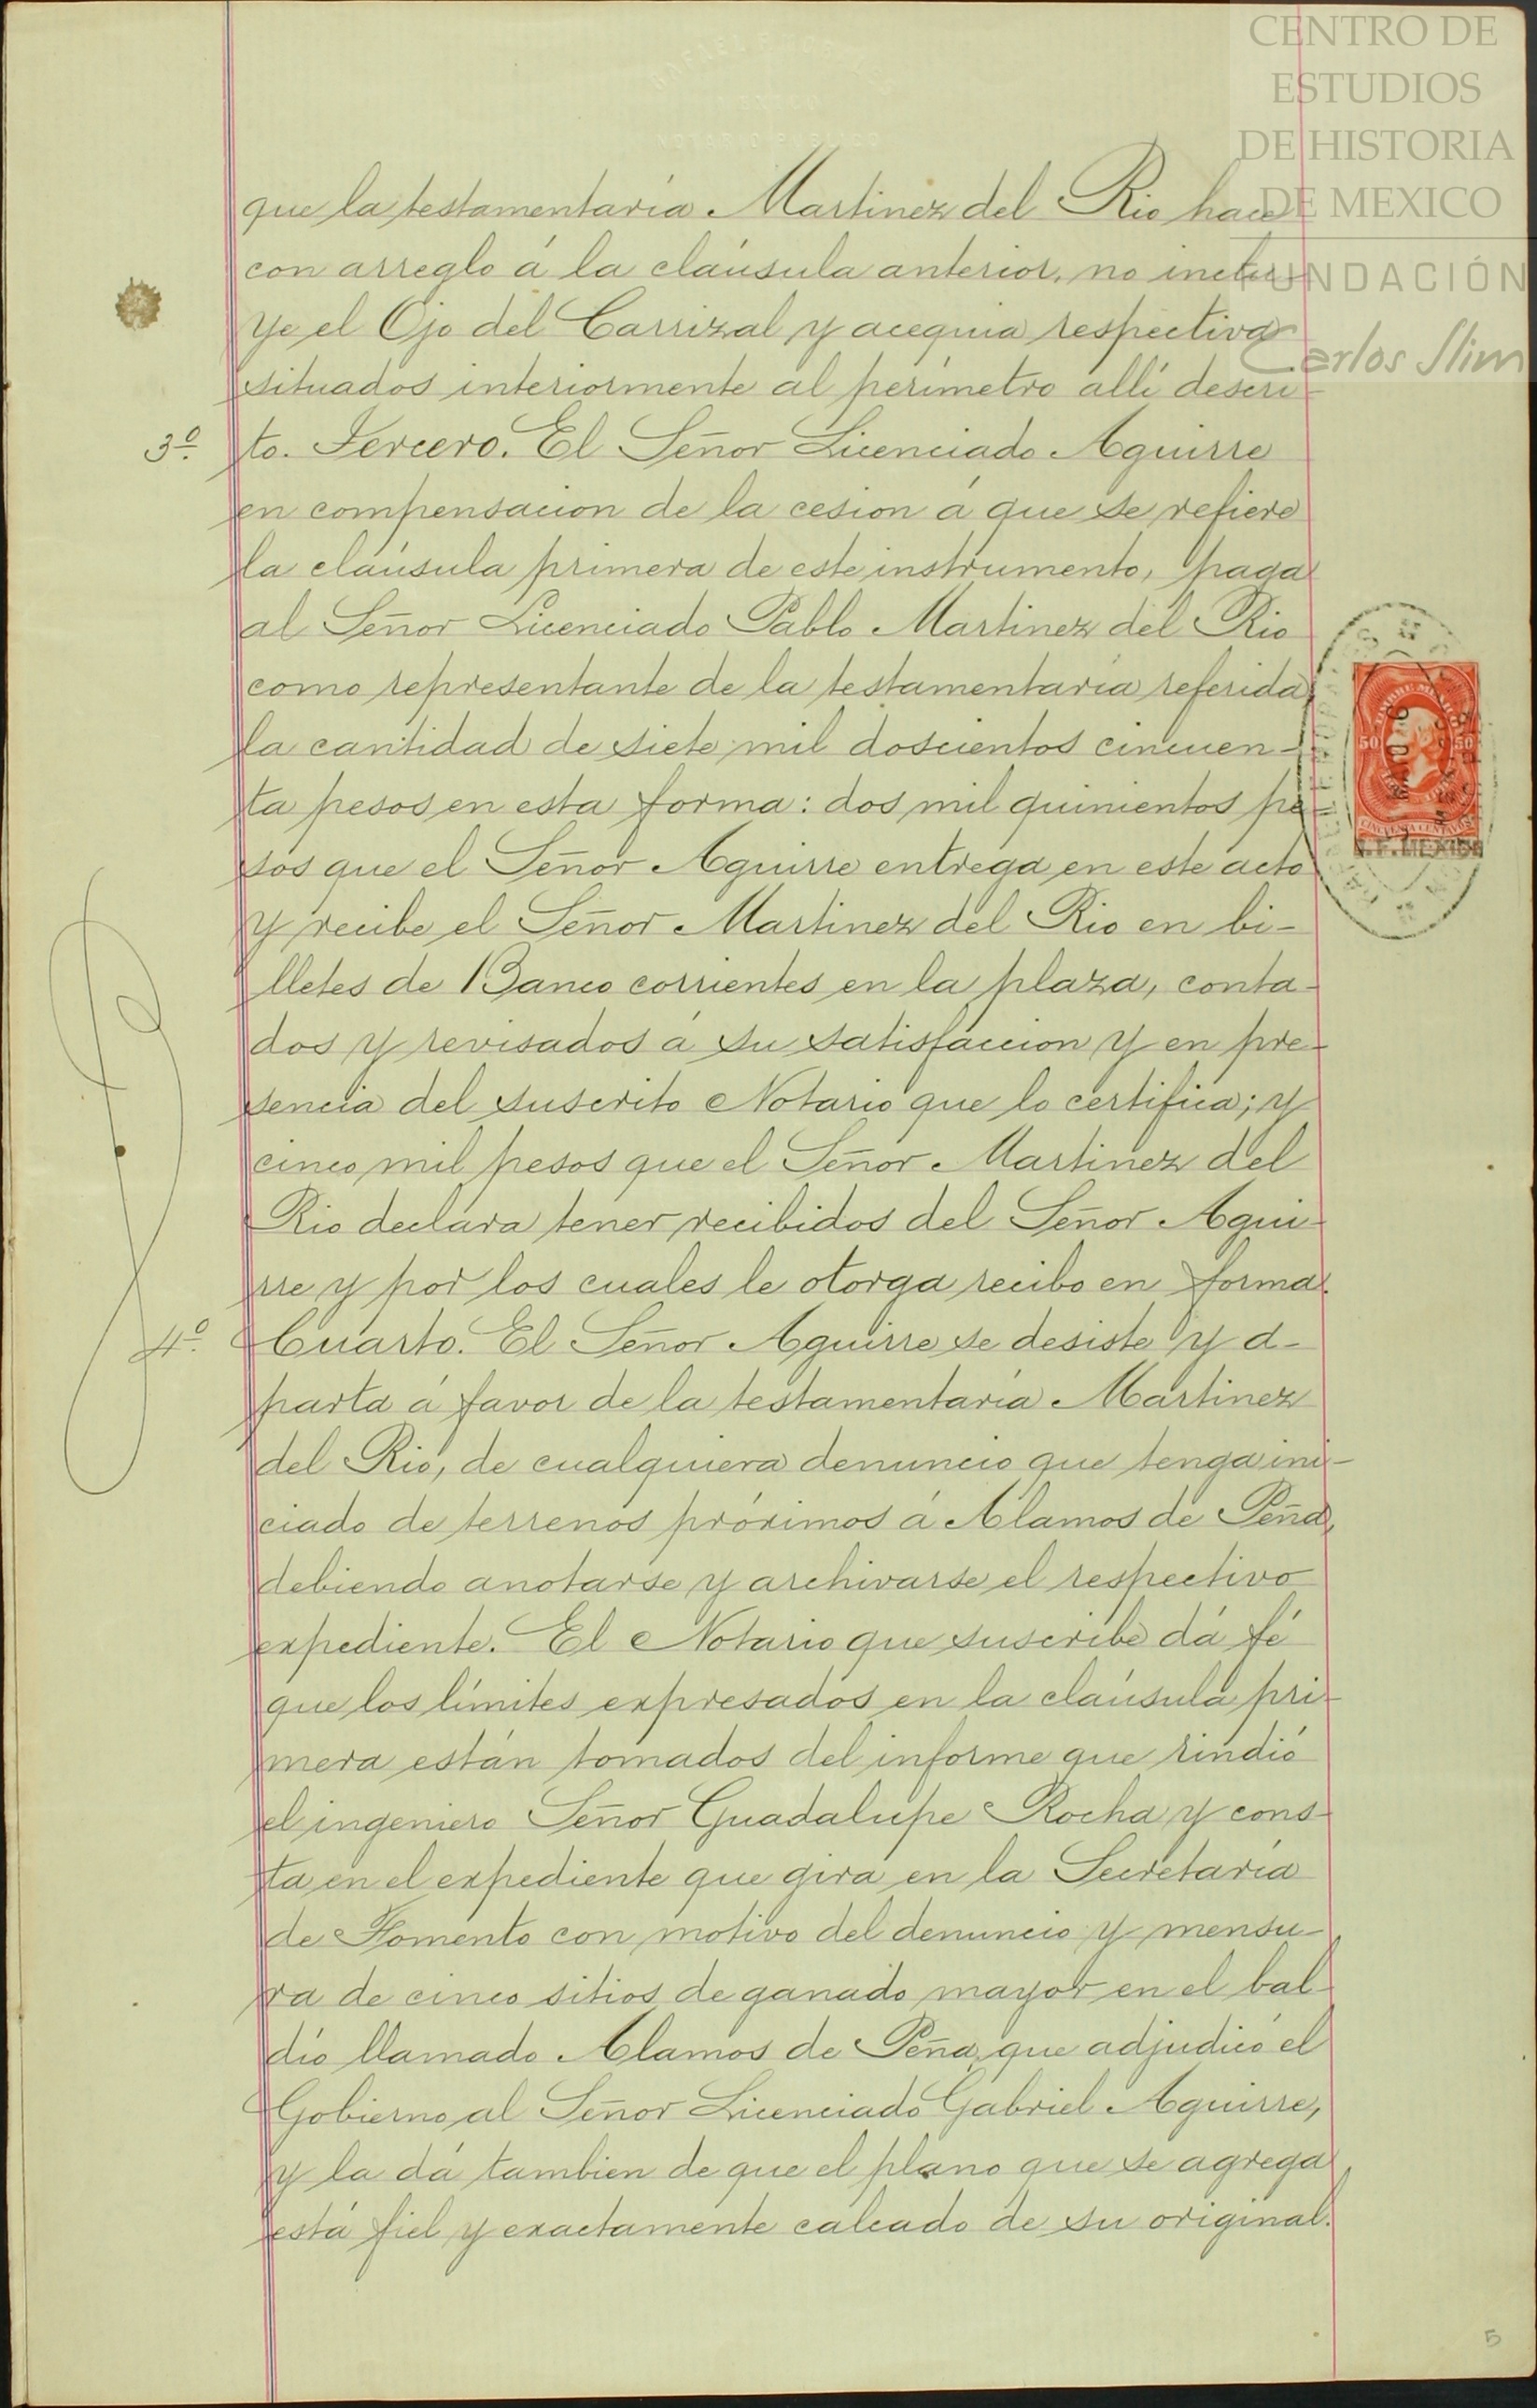 CENTRO DE
ESTUDIOS
DE HISTORIA
DE MEXICO
FUNDACIÓN
Carlos Slim
que la testamentaría Martinez del Rio hace
con arreglo á la cláusula anterior, no inclu-
ye el Ojo del Carrizal y acequia respectiva
situados interiormente al perímetro allí descri-
3º. to. Tercero. El Señor Licenciado Aguirre
en compensacion de la cesion á que se refiere
la cláusula primera de este instrumento, paga
al Señor Licenciado Pablo Martinez del Rio
como representante de la testamentaría referida,
la cantidad de siete mil doscientos cincuen-
ta pesos en esta forma: dos mil quinientos pe-
sos que el Señor Aguirre entrega en este acto
y recibe el Señor Martinez del Rio en bi-
lletes de Banco corrientes en la plaza, conta-
dos y revisados á su satisfaccion y en pre-
sencia del suscrito Notario que lo certifica; y
cinco mil pesos que el Señor Martinez del
Rio declara tener recibidos del Señor Agui-
rre y por los cuales le otorga recibo en forma.
4º. Cuarto. El Señor Aguirre se desiste y a-
parta á favor de la testamentaría Martinez
del Rio, de cualquiera denuncio que tenga ini-
ciado de terrenos próximos á Alamos de Peña,
debiendo anotarse y archivarse el respectivo
expediente. El Notario que suscribe dá fé
que los límites expresados en la cláusula pri-
mera están tomados del informe que rindió
el ingeniero Señor Guadalupe Rocha y cons-
ta en el expediente que gira en la Secretaría
de Fomento con motivo del denuncio y mensu-
ra de cinco sitios de ganado mayor en el bal-
dío llamado Alamos de Peña, que adjudicó el
Gobierno al Señor Licenciado Gabriel Aguirre,
y la dá tambien de que el plano que se agrega
está fiel y exactamente calcado de su original.
50 50
CINCUENTA CENTAVOS
D. F. MEXICO
5